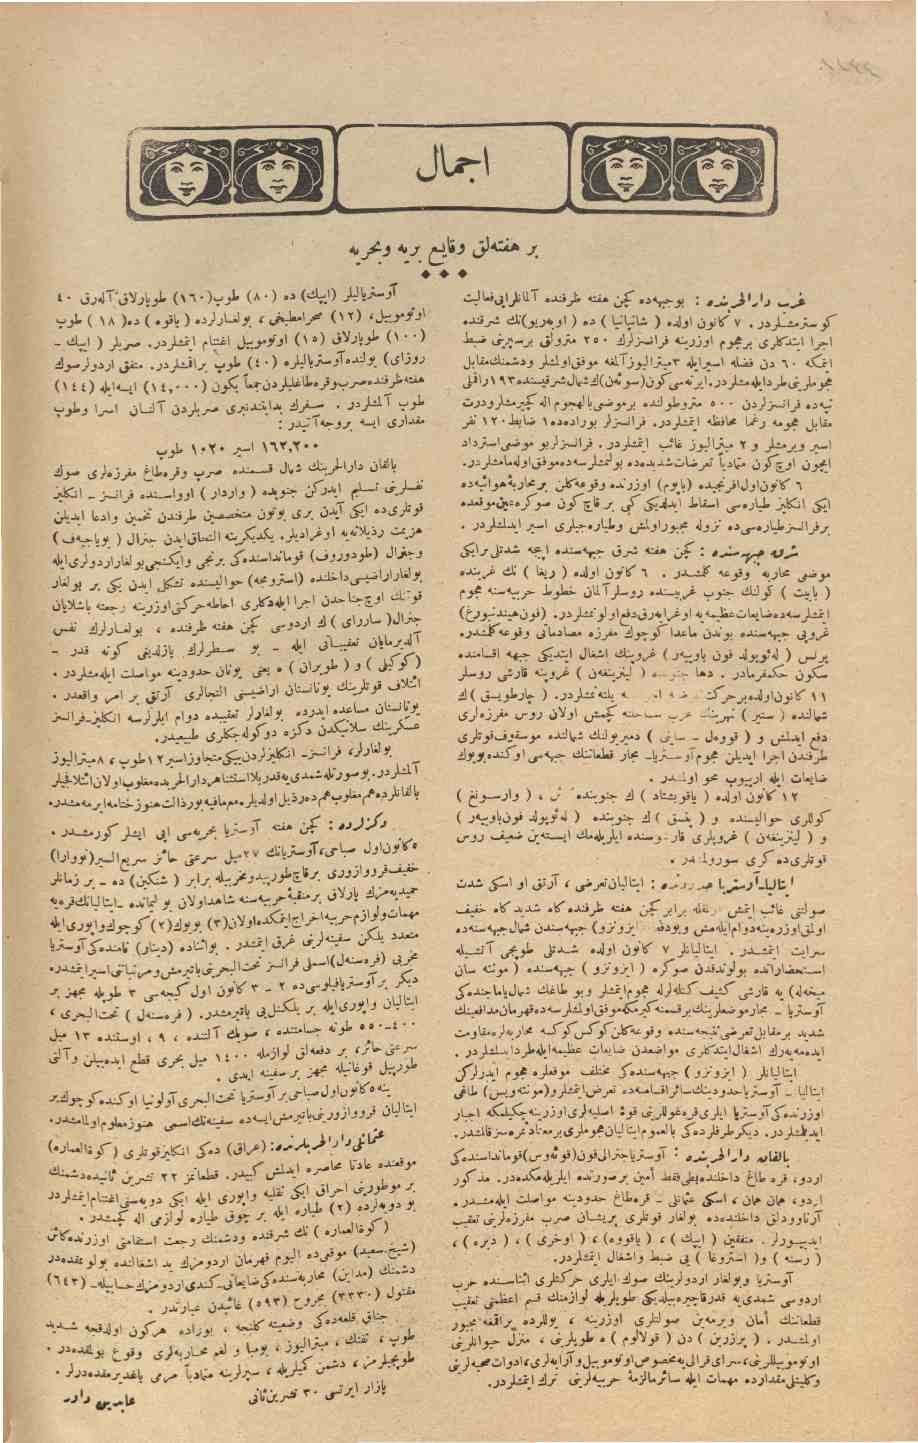 اجمال
بر هفته‌لق وقایع بریه وبحریه
غرب دارالحربنده : بوجبهه‌ده کچن هفته ظرفنده آلمانلر ایی فعالیت
کوسترمشلردر. ۷ کانون اولده ( شانپانیا ) ده ( اوبه‌ریو)نك شرقنده
اجرا ایتدکلری برهجوم اوزرینه فرانسزلرك ۲۵۰ مترولق برسپرینی ضبط
ایتمکه ۶۰ دن فضله اسیرایله ۳میترالیوزآلمغه موفق اولمشلر ودشمنك‌مقابل
هجوملرینی طردایله‌مشلردر. ایرته‌سی کون(سوئه‌ن)ك‌شمال شرقیسنده۱۹۳راقملی
تپه‌ده فرانسزلردن ۵۰۰ متروطولنده برموضعی‌بالهجوم اله کچیرمشلرودرت
مقابل هجومه رغماً محافظه ایتمشلردر. فرانسزلر بوراده‌ده۱ ضابط۱۲۰ نفر
اسیر ویرمشلر و ۲ میترالیوز غائب ایتمشلردر. فرانسزلربو موضعی استرداد
ایچون اوچ‌کون متمادیاً تعرضات شدیده‌ده بولنمشلرسه‌ده‌موفق‌اوله‌مامشلردر.
۶ کانون‌اول‌افرنجیده (باپوم) اوزرنده وقوعه‌کلن برمحاربهٔ هوائیه‌ده
ایکی انکلیز طیاره‌سی اسقاط ایدلدیکی کبی بر قاچ کون صوکره‌عین‌موقعده
برفرانسزطیاره‌سی‌ده نزوله مجبوراولمش وطیاره‌جیلری اسیر ایدلمشلردر .
شرق جبهه‌سنده : کچن هفته شرق جبهه‌سنده ایجه شدتلی‌برایکی
موضعی محاربه وقوعه کلمشدر. ۶ کانون اولده ( ریغا ) نك غربنده
( بابیت ) کولنك جنوب غربیسنده روسلرآلمان خطوط حربیه‌سنه هجوم
ایتمشلرسه‌ده‌ضایعات‌عظیمه‌یه اوغرایه‌رق‌دفع‌اولونمشلردر. (فون‌هیندنبورغ)
غروپی جبهه‌سنده بوندن ماعدا کوچوك مفرزه مصادماتی وقوعه‌کلمشدر.
پرنس ( له‌ئوپولد فون باویه‌ر) غروپنك اشغال ایتدیکی جبهه اقسامنده
سکون حکمفرمادر. دها جنوبده ( لینزینغه‌ن ) غروپنه قارشی روسلر
۱۱ کانون‌اولده‌برحرکت
شمالنده ( ستیر ) نهرینك غرب ساحلنه کچمش اولان روس مفرزه‌لری
دفع ایدلمش و ( قووه‌ل ـ سارنی ) دمیریولنك شمالنده موسقوف‌قوتلری
طرفندن اجرا ایدیلن هجوم آوستریا‌ـ مجار قطعاتنك جبهه‌سی اوکنده‌بویوك
ضایعات ایله ارییوب محو اولمشدر .
۱۲ کانون اولده ( یاقوبشتاد ) ك جنوبنده ، ( وارسونغ )
کوللری حوالیسنده و ( پنسق ) ك جنوبنده ( له‌ئوپولد فون‌باویه‌ر )
و ( لینزینغه‌ن ) غروپلری قارشوسنده ایلریله‌مك ایسته‌ین ضعیف روس
قوتلری‌ده کری سورولمشدر .
ایتالیا‌ـ آوستریا حدودنده : ایتالیان‌تعرضی ، آرتق او اسکی شدت
صولتنی غائب ایتمش اولمغله برابر کچن هفته ظرفنده گاه شدید گاه خفیف
اولق‌اوزره‌ینه‌دوام‌ایله‌مش وبودفعه ایزونزو) جبهه‌سندن شمال‌جبهه‌سنه‌ده
سرایت ایتمشدر. ایتالیانلر ۷ کانون اولده شدتلی طوپجی آتشیله
استحضاراتده بولوندقدن صوکره ( ایزونزو ) جبهه‌سنده ( مونته سان
میخه‌له) یه قارشی کثیف کتله‌لرله هجوم‌ایتمشلر وبو طاغك شمال‌یاماجنده‌کی
آوستریا ـ مجارموضعلرینك‌برقسمنه کیرمکه‌موفق‌اولمشلرسه‌ده‌قهرمان‌مدافعینك
شدید برمقابل‌تعرضی‌نتیجه‌سنده وقوعه‌کلن‌کوکس‌کوکسه محاربه‌لره‌مقاومت
ایده‌مه‌یه‌رك اشغال‌ایتدکلری مواضعدن ضایعات عظیمه‌ایله‌طردایدلمشلردر .
ایتالیانلر ( ایزونزو ) جبهه‌سنده‌کی مختلف موقعلره هجوم ایدرلرکن
ایتالیا ـ آوستریا حدودینك سائراقسامنه‌ده تعرض‌ایتمشلرو(مونته‌ویس) طاغی
اوزرنده‌کی آوستریا ایلری قره‌غوللرینی قوهٔ اصلیه‌لری‌اوزرینه‌چکیلمکه اجبار
ایدلمشلردر. دیکرطرفلرده‌کی بالعموم‌ایتالیان‌هجوملری‌برمعتاد‌ثمره‌سزقالمشدر.
بالقان دارالحربنده : آوستریاجنرالی‌فون(قوئه‌وس)قومانداسنده‌کی
اردو، قره طاغ داخلنده‌بطی‌فقط أمین برصورتده ایلریله‌مکده‌در. مذکور
اردو، همان همان ، اسکی عثمانلی ـ قره‌طاغ حدودینه مواصلت ایله‌مشدر.
آرناوودلق داخلنده‌ده بولغار قوتلری پریشان صرب مفرزه‌لرینی تعقیب
ایدییورلر. متفقین ( ایپك ) ، ( یاقووه) ، ( اوخری ) ، ( دبره ) ،
( رسنه ) و( استروغا ) یی ضبط واشغال ایتمشلردر.
آوستریا وبولغار اردولرینك صوك ایلری حرکتلری اثناسنده حرب
اردوسی شمدی‌یه قدرقاچیره‌بیلدیکی طوپلریله لوازمنك قسم اعظمنی تعقیب
قطعاتنك أمان ویرمه‌ین صولتلری اوزرینه ، یوللرده براقمغه‌مجبور
اولمشدر. ( پرزرین ) دن ( قولالوم ) ه طوپلرینی ، منزل حیوانلرینی
اوتوموبیللرینی، سرای‌قرالی‌یه‌مخصوص‌اوتوموبیل‌وآرابه‌لری، ادوات‌صحیه‌لرینی
وکلیتلی‌مقدارده مهمات ایله سائرمالزمهٔ حربیه‌لرینی ترك ایتمشلردر.
آوستریالیلر (ایپك) ده (۸۰) طوپ(۱۶۰) طوپارلاق آله‌رق ۴۰
اوتوموبیل، (۱۲) صحرامطبخی ، بولغارلرده ( یاقوه ) ده( ۱۸ ) طوپ
(۱۰۰) طوپارلاق (۱۵) اوتوموبیل اغتنام ایتمشلردر. صربلر ( ایپك ـ
روژای) یولنده‌آوستریالیلره (۴۰) طوپ براقمشلردر. متفق اردولرصوك
هفته‌ظرفنده‌صرب‌وقره‌طاغلیلردن‌جمعاً یکون (۱۴,۰۰۰) ایسه‌ایله (۱۴۴)
طوپ آلمشلردر . سفرك بدایتندنبری صربلردن آلنان اسرا وطوپ
مقداری ایسه بروجه‌آتیدر :
۱۶۲,۲۰۰ اسیر ۱۰۲۰ طوپ
بالقان دارالحربنك شمال قسمنده صرب وقره‌طاغ مفرزه‌لری صوك
نفسلرینی تسلیم ایدرکن جنوبده ( واردار ) اوواسنده فرانسز ـ انکلیز
قوتلری‌ده ایکی آیدن بری بوتون متخصصین طرفندن تخمین وادعا ایدیلن
هزیمت رذیلانه‌یه اوغرادیلر. یکدیکرینه التصاق‌ایدن جنرال ( بویاجیه‌ف )
وجنرال (طودوروف) قوماندا‌سنده‌کی برنجی وایکنجی‌بولغاراردولری‌ایله
بولغاراراضیسی‌داخلنده (استرومجه) حوالیسنده تشکل ایدن یکی بر بولغار
قوتنك اوچ‌جناحدن اجرا ایله‌دکلری احاطه‌حرکتی‌اوزرینه رجعته باشلایان
جنرال( سارای) ك اردوسی کچن هفته ظرفنده ، بولغارلرك نفس
آلدیرمایان تعقیباتی ایله ـ بو سطرلرك یازلدیغی کونه قدر ـ
(کوکیلی ) و ( طویران ) ه یعنی یونان حدودینه مواصلت ایله‌مشلردر.
ائتلاف قوتلرینك یونانستان اراضیسی التجالری آرتق بر امر واقعدر.
یونانستان مساعده ایدرده بولغارلر تعقیبده دوام ایلرلرسه انکلیز‌ـفرانسز
عسکرینك سلانیکدن دکزه دوکوله‌جکلری طبیعیدر.
بولغارلر، فرانسز‌ـ انکلیزلردن‌بیکی‌متجاوزاسیر ۱۲طوپ ، ۸میترالیوز
آلمشلردر. بوصورتله‌شمدی‌یه‌قدربلااستثناهردارالحربده‌مغلوب‌اولان‌ائتلافجیلر
بالقانلرده‌هم‌مغلوب‌هم‌ده‌رذیل‌اولدیلر. مع‌مافیه‌بورذالت‌هنوزختامه‌ایرمه‌مشدر.
دکزلرده : کچن هفته آوستریا بحریه‌سی ایی ایشلر کورمشدر .
۵کانون‌اول صباحی، آوستریانك ۲۷میل سرعتی حائز سریع‌السیر(نووارا)
خفیف‌قرووازوری برقاچ‌طورپیدومخربیله برابر ( شنکین) ده ـ بر زمانلر
حمیدیه‌مزك پارلاق برمنقبهٔ‌حربیه‌سنه شاهداولان بو لیمانده ـ ایتالیانك‌قره‌یه
مهمات‌ولوازم‌حربیه‌اخراج‌ایتمکده‌اولان(۳) بویوك(۲) کوچوك‌واپوری‌ایله
متعدد یلکن سفینه‌لرینی غرق ایتمشدر. بواثناده (دینار) نامنده‌کی‌آوستریا
مخربی (فره‌سنه‌ل)اسملی فرانسز تحت‌البحرینی‌باتیرمش‌ومرتباتنی‌اسیرایتمشدر.ه
دیکر برآوستریافیلوسی‌ده ۲ ـ ۳ کانون اول کیجه‌سی ۳ طوپله مجهز بر
ایتالیان واپوری‌ایله بر یلکنلی‌یی باتیرمشدر. (فره‌سنه‌ل ) تحت‌البحری ،
۴۰۰ـ ۵۵۰ طونه جسامتنده ، صویك آلتنده ، ۹ ، اوستنده ۱۳ میل
سرعتی حائز، بر دفعه‌لق لوازمله ۱۴۰۰ میل بحری قطع ایده‌بیلن و آلتی
طورپیل قوغانیله مجهز بر سفینه ایدی .
ینه ۵کانون‌اول‌صباحی‌بر آوستریا تحت‌البحری آولونیا اوکنده‌کوچوك‌بر
ایتالیان قرووازورینی‌باتیرمش‌ایسه‌ده سفینه‌نك‌اسمی هنوزمعلوم‌اولمامشدر.
عثمانلی‌دارالحربلرنده: (عراق) ده‌کی انکلیزقوتلری ( کوة‌العماره)
موقعنده عادتا محاصره ایدلمش کبیدر. قطعاتمز ۲۲ تشرین ثانیده‌دشمنك
بر موطورینی احراق ایکی نقلیه واپوری ایله ایکی دوبه‌سنی‌اغتنام‌ایتمشلردر
بو دوبه‌لرده (۲) طیاره ایله بر چوق طیاره لوازمی اله کچمشدر.
(کوة‌العماره ) نك شرقنده ودشمنك رجعت استقامتی اوزرنده‌کائن
(شیخ‌سعید) موقعی‌ده الیوم قهرمان اردومزك ید اشغالنده بولونمقده‌در
دشمنك (مدائن) محاربه‌سنده‌کی‌ضایعاتی‌ـ کندی‌اردومزك‌حسابیله‌ـ (۶۴۳)
مقتول (۳۳۳۰) مجروح (۵۹۳) غائبدن عبارتدر .
چناق قلعه‌ده‌کی وضعیته کلنجه ، بوراده هرکون اولدقجه شدید
طوپ ، تفنك ، میترالیوز ، بومبا و لغم محاربه‌لری وقوع بولمقده‌در.
طوپجیلرمز ، دشمن کمیلریله ، سپرلرینه متمادیاً مرمی یاغدیرمقده‌درلر .
پازار ایرتسی ۳۰ تشرین‌ثانی
عابدین داور